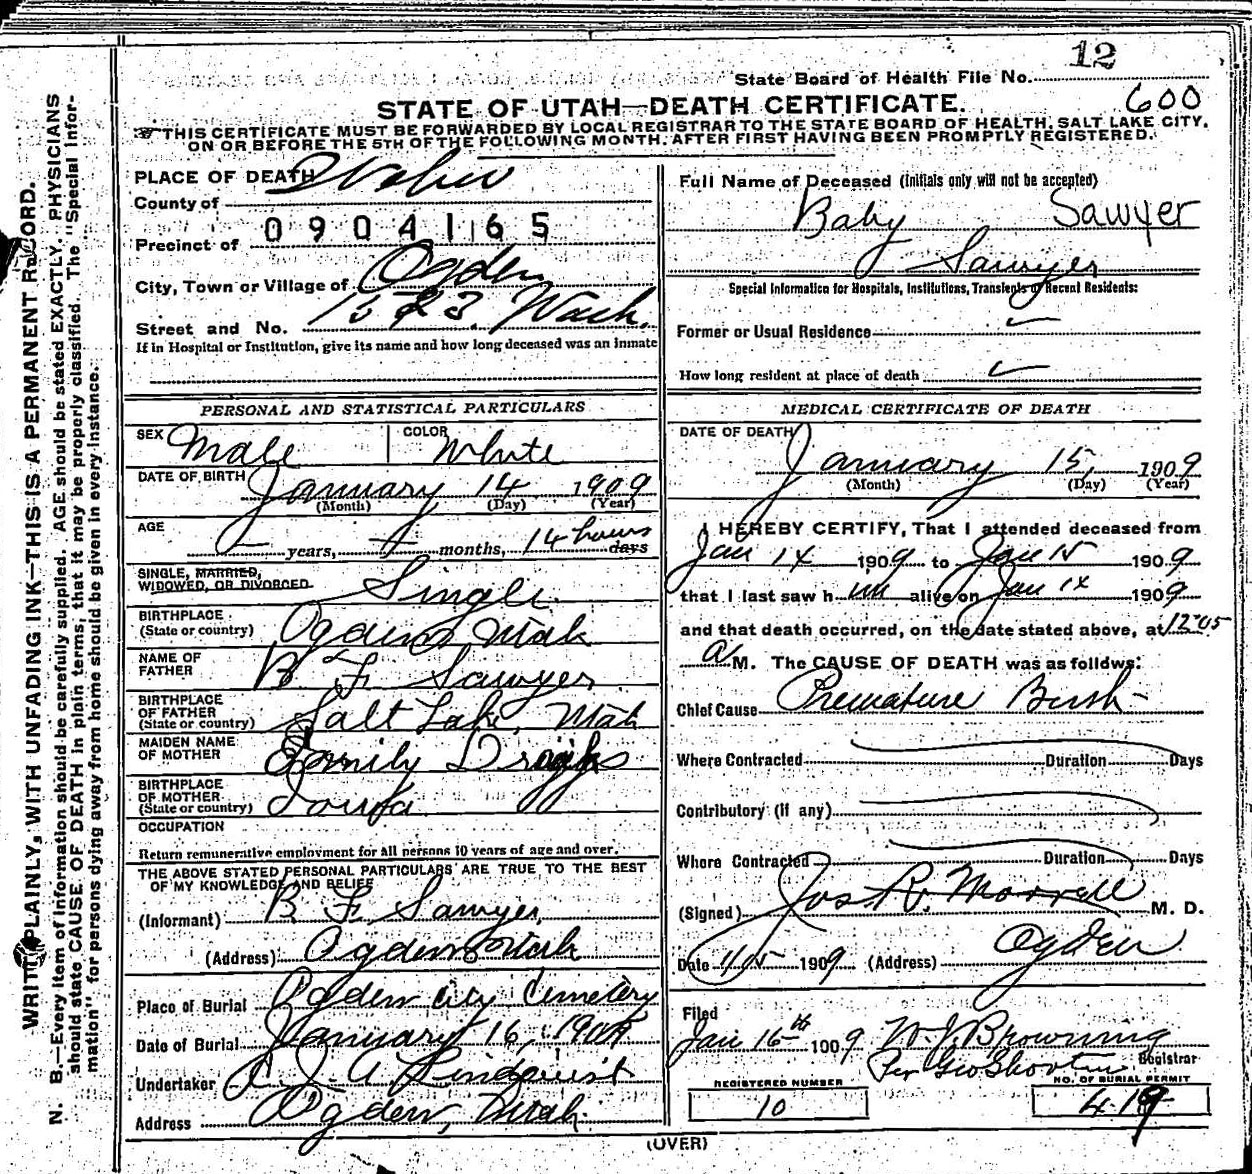 12
State Board of Health File No.
600
STATE OF UTAH—DEATH CERTIFICATE.
THIS CERTIFICATE MUST BE FORWARDED BY LOCAL REGISTRAR TO THE STATE BOARD OF HEALTH, SALT LAKE CITY,
ON OR BEFORE THE 5TH OF THE FOLLOWING MONTH. AFTER FIRST HAVING BEEN PROMPTLY REGISTERED.
PLACE OF DEATH
County of Weber
0904165
Precinct of
City, Town or Village of Ogden
Street and No. 1523 Wash.
If in Hospital or Institution, give its name and how long deceased was an inmate
PERSONAL AND STATISTICAL PARTICULARS
SEX Male COLOR White
DATE OF BIRTH January 14 1909
(Month) (Day) (Year)
AGE — years, — months, 14 hours days
SINGLE, MARRIED,
WIDOWED, OR DIVORCED Single
BIRTHPLACE
(State or country) Ogden, Utah
NAME OF
FATHER B F Sawyer
BIRTHPLACE
OF FATHER
(State or country) Salt Lake, Utah
MAIDEN NAME
OF MOTHER Emily
BIRTHPLACE
OF MOTHER
(State or country) Iowa
OCCUPATION
Return remunerative employment for All persons 10 years of age and over.
THE ABOVE STATED PERSONAL PARTICULARS ARE TRUE TO THE BEST
OF MY KNOWLEDGE AND BELIEF
(Informant) B F Sawyer
(Address) Ogden Utah
Place of Burial Ogden City Cemetery
Date of Burial January 16, 1909
Undertaker C. J. A. Lindquist
Address Ogden, Utah.
Full Name of Deceased (initials only will not be accepted)
Baby Sawyer
Sawyer
Special Information for Hospitals, Institutions, Transients or Recent Residents:
Former or Usual Residence
How long resident at place of death
MEDICAL CERTIFICATE OF DEATH
DATE OF DEATH
January 15, 1909
(Month) (Day) (Year)
I HEREBY CERTIFY, That I attended deceased from
Jan 14 1909 to Jan 15 1909
that I last saw h im alive on Jan 14 1909
and that death occurred, on the date stated above, at 12 05
A M. The CAUSE OF DEATH was as follows:
Chief Cause Premature Birth
Where Contracted Duration Days
Contributory (if any)
Where Contracted Duration Days
(Signed) Jos R. Morrell M. D.
Date 1/15 1909 (Address) Ogden
Filed
Jan 16th 1909 W. J. Browning
Registrar
Per Geo
REGISTERED NUMBER
10
NO. OF BURIAL PERMIT
419
(OVER)
WRITE PLAINLY, WITH UNFADING INK—THIS IS A PERMANENT RECORD.
N. B.—Every item of information should be carefully supplied. AGE should be stated EXACTLY. PHYSICIANS
should state CAUSE OF DEATH in plain terms, that it may be properly classified. The "Special Infor-
mation" for persons dying away from home should be given in every instance.